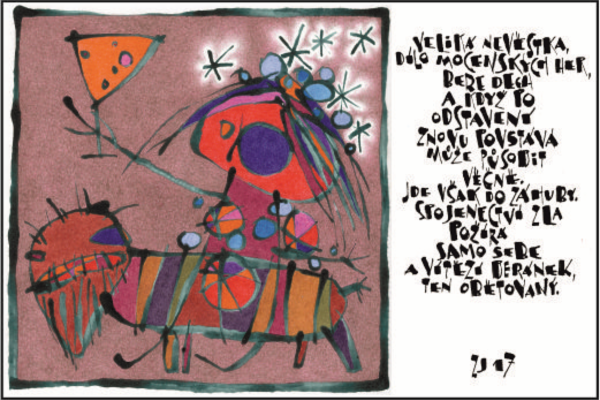 VELIKÁ NEVĚSTKA,
DÍLO MOCENSKÝCH HER,
BERE DECH
A KDYŽ PO
ODSTAVENÍ
ZNOVU POVSTÁVÁ
MŮŽE PŮSOBIT
VĚČNĚ.
JDE VŠAK DO ZÁHUBY.
SPOJENECTVÍ ZLA
POŽÍRÁ
SAMO SEBE
A VÍTĚZÍ BERÁNEK,
TEN OBĚTOVANÝ.
ZJ 17